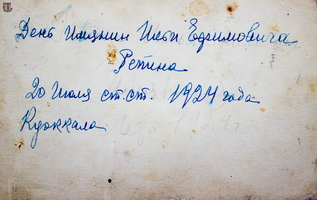 День Имянин Ильи Ефимовича
Репина
20 Июля ст. ст. 1924 года
Куоккала